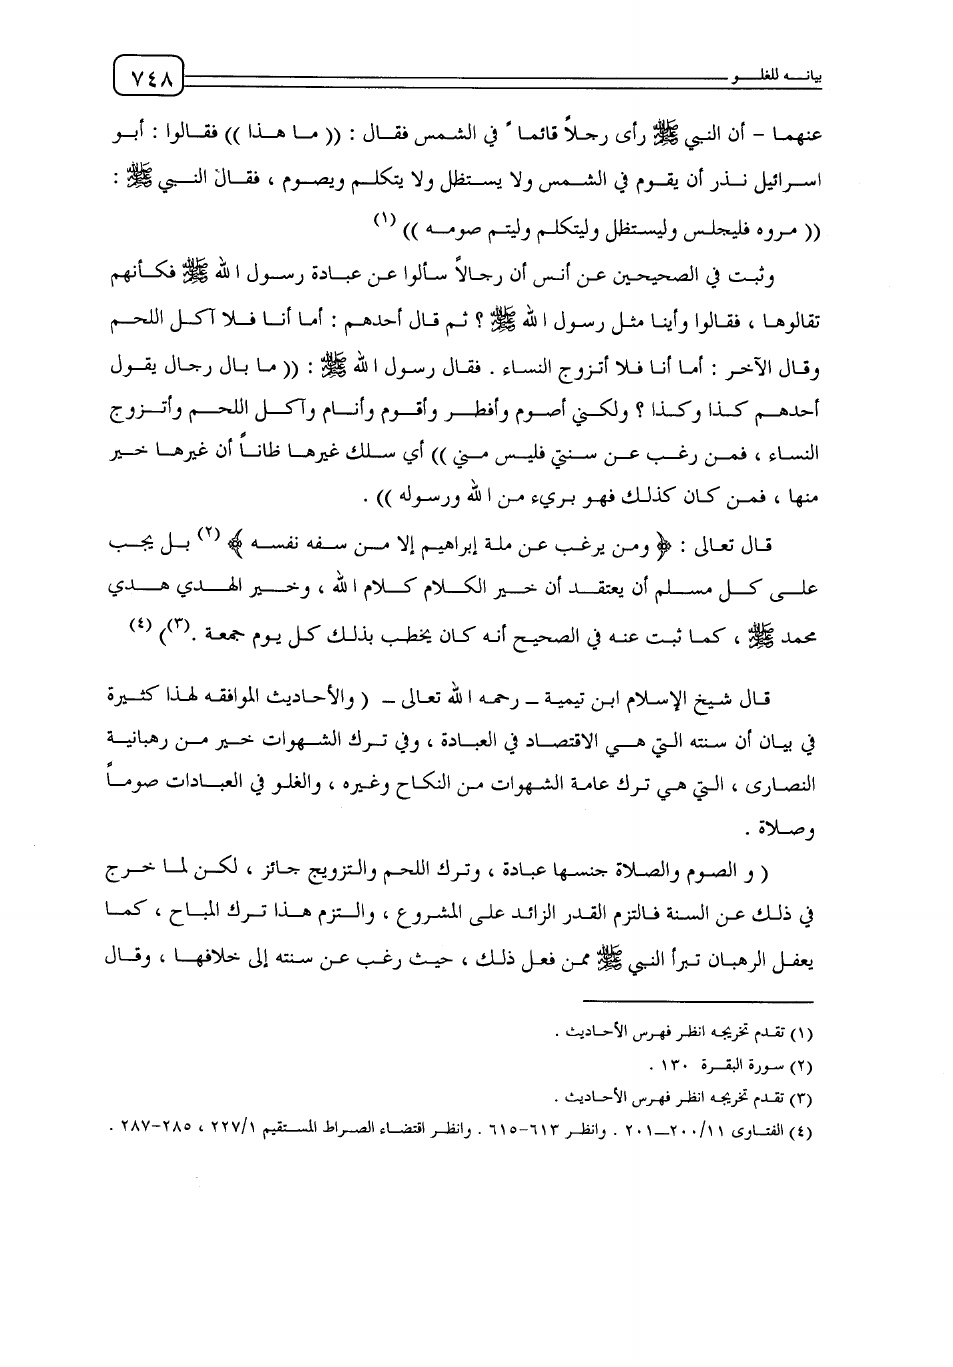 بيانه للغلو
٧٤٨
عنهما – أن النبي ﷺ رأى رجلاً قائما ً في الشمس فقال : (( ما هذا )) فقالوا : أبو
اسرائيل نذر أن يقوم في الشمس ولا يستظل ولا يتكلم ويصوم ، فقال النبي ﷺ :
(( مروه فليجلس وليستظل وليتكلم وليتم صومه )) (١)
وثبت في الصحيحين عن أنس أن رجالاً سألوا عن عبادة رسول الله ﷺ فكأنهم
تقالوها ، فقالوا وأينا مثل رسول الله ﷺ ؟ ثم قال أحدهم : أما أنا فلا آكل اللحم
وقال الآخر : أما أنا فلا أتزوج النساء . فقال رسول الله ﷺ : (( ما بال رجال يقول
أحدهم كذا وكذا ؟ ولكني أصوم وأفطر وأقوم وأنام وآكل اللحم وأتزوج
النساء ، فمن رغب عن سنتي فليس مني )) أي سلك غيرها ظاناً أن غيرها خير
منها ، فمن كان كذلك فهو بريء من الله ورسوله )) .
قال تعالى : ﴿ ومن يرغب عن ملة إبراهيم إلا من سفه نفسه ﴾ (٢) بل يجب
على كل مسلم أن يعتقد أن خير الكلام كلام الله ، وخير الهدي هدي
محمد ﷺ ، كما ثبت عنه في الصحيح أنه كان يخطب بذلك كل يوم جمعة .(٣)) (٤)
قال شيخ الإسلام ابن تيمية ـ رحمه الله تعالى ـ ( والأحاديث الموافقه لهذا كثيرة
في بيان أن سنته التي هي الاقتصاد في العبادة ، وفي ترك الشهوات خير من رهبانية
النصارى ، التي هي ترك عامة الشهوات من النكاح وغيره ، والغلو في العبادات صوماً
وصلاة .
( و الصوم والصلاة جنسها عبادة ، وترك اللحم والتزويج جائز ، لكن لما خرج
في ذلك عن السنة فالتزم القدر الزائد على المشروع ، والتزم هذا ترك المباح ، كما
يعفل الرهبان تبرأ النبي ﷺ ممن فعل ذلك ، حيث رغب عن سنته إلى خلافها ، وقال
(١) تقدم تخريجه انظر فهرس الأحاديث .
(٢) سورة البقرة ١٣٠ .
(٣) تقدم تخريجه انظر فهرس الأحاديث .
(٤) الفتاوى ٢٠٠/١١ــ٢٠١ . وانظر ٦١٣-٦١٥ . وانظر اقتضاء الصراط المستقيم ٢٢٧/١ ، ٢٨٥-٢٨٧ .